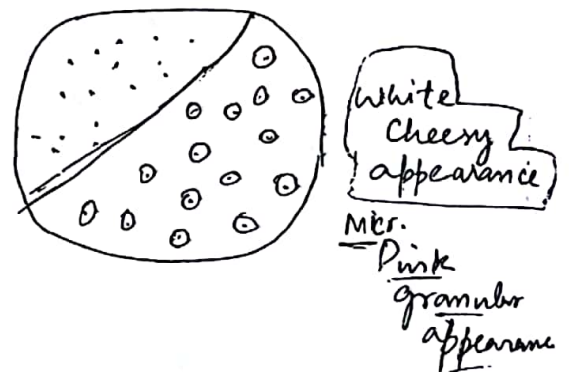 White
Cheesy
appearance
Micr.
Pink
granular
appearance